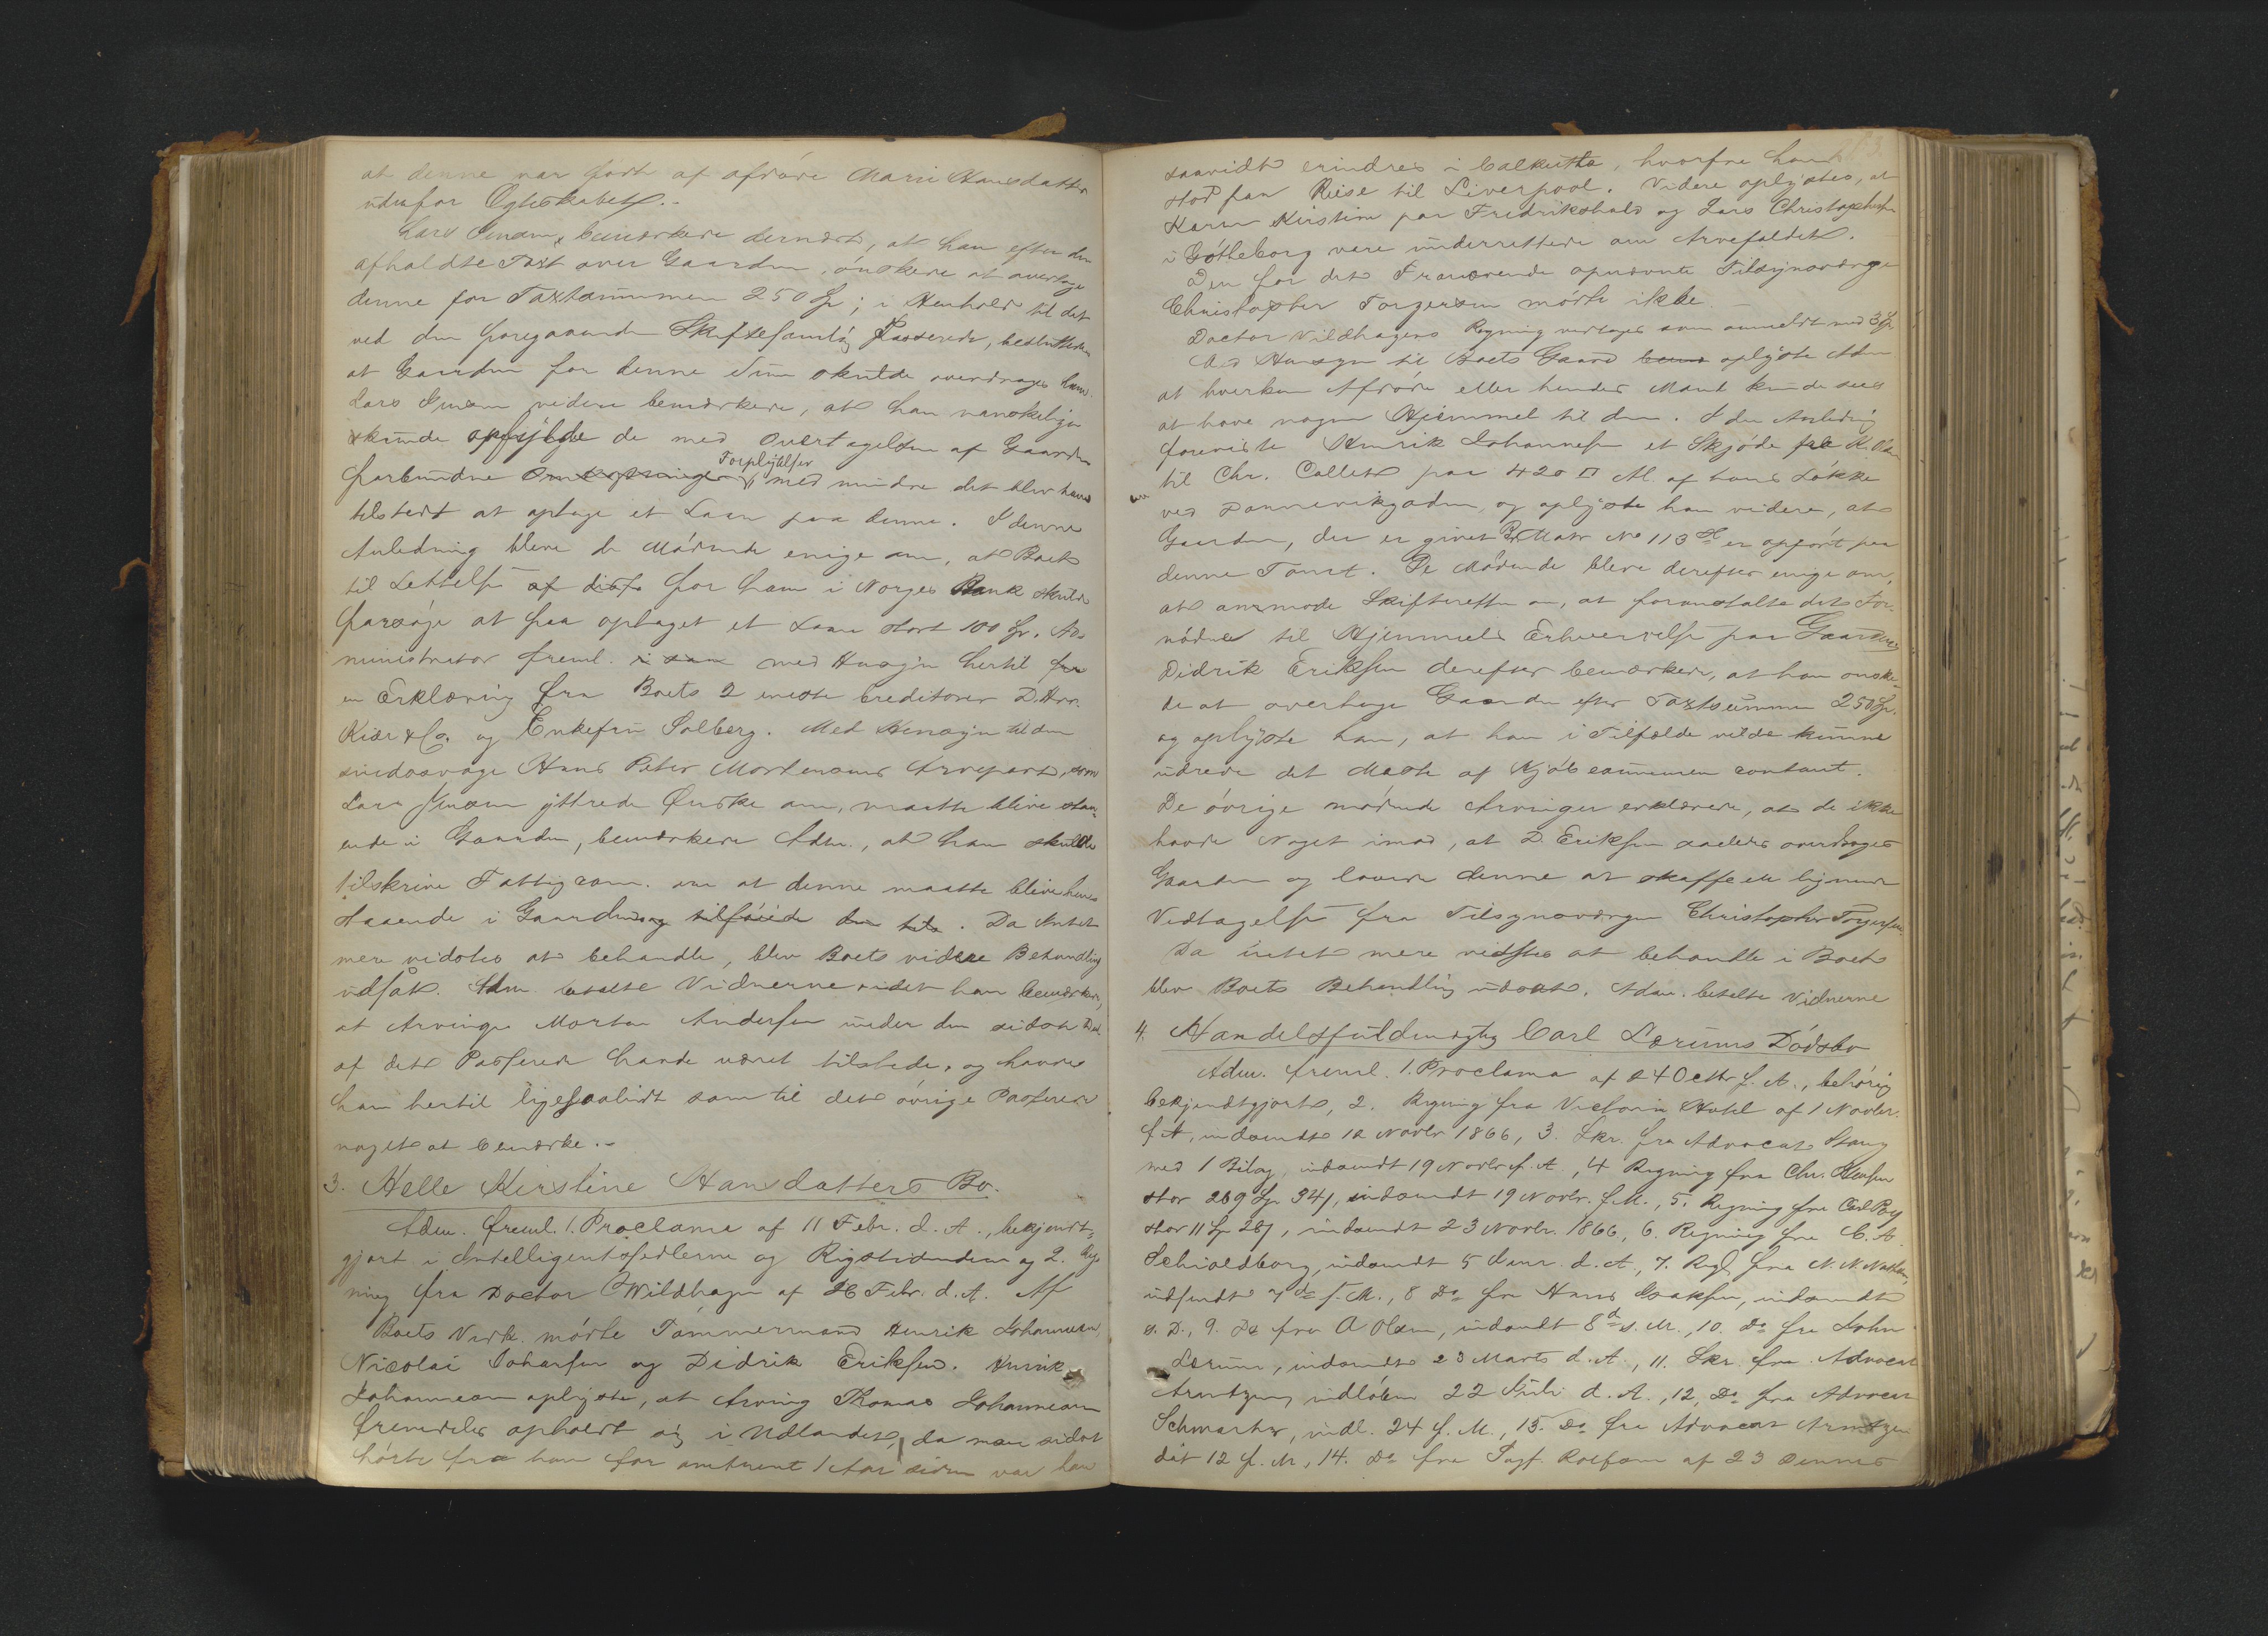 at denne var født af afdøde Marie Hansdatter
udenfor Ægteskabet.-
Lars Jensen bemærkede dernæst, at han efter den
afholdte Taxt over Gaarden, ønskede at overtage
denne for Taxtsummen 250 Spd; i Henhold til det
ved den foregaaende Skiftesamlg Passerede, besluttedes
at Gaarden for denne Sum skulde overdrages ham.
Lars Jensen videre bemærkede, at han vanskeligen
kunde opfylde de med Overtagelsen af Gaarden
forbundne Forpligtelser med mindre det blev ham
tilstedt at optage et Laan paa denne. I denne
Anledning bleve de Mødende enige om, at Boet
til Lettelse af dette for ham i Norges Bank skulde
forsøge at faa optaget et Laan stort 100 Spd. Ad-
ministrator freml. med Hensyn hertil
en Erklæring fra Boets 2 eneste Creditorer D.Hrr.
Kiær & Co. og Enkefru Solberg. Med Hensyn til den
sindssvage Hans Peter Mortensens Arvepart, som
Lars Jensen yttrede Ønske om, maatte blive staa-
ende i Gaarden, bemærkede Adm., at han skulde
tilskrive Fattigcom. om at denne maatte blive
staaende i Gaarden. Da Intet
mere vidstes at behandle, blev Boets videre Behandling
udsat. Adm. betalte Vidnerne, idet han bemærkede,
at Arvingen Morten Andersen under den sidste Deel
af det Passerede havde været tilstede, og havde
han hertil ligesaalidt som til det øvrige Passerede
noget at bemærke.-
3. Helle Kirstine Hansdatters Bo.
Adm. freml. 1. Proclama af 11 Febr. d. A., bekjendt-
gjort i Intelligentssedlerne og Rigstidenden og 2. Reg-
ning fra Doctor Wildhagen af 26 Febr. d. A. Af
Boets Vedk. mødte Tømmermand Henrik Johannesen,
Nicolai Johansen og Didrik Eriksen. Henrik
Johannesen oplyste, at Arving Thomas Johannesen
fremdeles opholdt sig i Udlandet, da man sidst
hørte fra ham for omtrent 1 Aar siden var han
saavidt erindres i Calkutta, hvorfra han
stod paa Reise til Liverpool. Videre oplystes, at
Karen Kirstine paa Fredrikshald og Lars Christophersen
i Gøtheborg vare underrettede om Arvefaldet.
Den for det Fraværende opnævnte Tilsynsværge
Christopher Torgersen mødte ikke.
Doctor Wildhagens Regning vedtoges som anmeldt med 3 Spd
Med Hensyn til Boets Gaard oplyste Adm
at hverken Afdøde eller hendes Mand kunde sees
at have nogen Hjemmel til den. I den Anledng
foreviste Henrik Johannesen et Skjøde fra
til Chr. Collett paa 420 □ Al. af hans Løkke
ved Dannevikgaden, og oplyste han videre, at
Gaarden, der er givet Matr No 113 er opført paa
denne Tomt. De Mødende bleve derefter enige om,
at anmode Skifteretten om, at foranstalte det For-
nødne til Hjemmels Erhvervelse paa Gaarden
Didrik Eriksen derefter bemærkede, at han ønske-
de at overtage Gaarden efter Taxtsummen 250 Spd.
og oplyste han, at han i Tilfælde vilde kunne
udrede det Meste af Kjøbesummen contant.
De øvrige mødende Arvinger erklærede, at de ikke
havde Noget imod, at D. Eriksen saaledes overdroges
Gaarden og lovede denne at skaffe en lignende
Vedtagelse fra Tilsynsværgen Christopher Torgersen.
Da intet mere vidstes at behandle i Boet
blev Boets Behandling udsat. Adm. betalte Vidnerne
4. Handelsfuldmægtig Carl Lærums Dødsbo
Adm. freml. 1. Proclama af 24 Octbr f. A., behørig
bekjendtgjort, 2. Regning fra Victoria Hotel af 1 Novbr.
f. A., indsendt 12 Novbr 1866, 3. Skr. fra Advocat Stang
med 1 Bilag, indsendt 19 Novbr f. A., 4 Regning fra Chr.
stor 269 Spd 34 s, indsendt 19 Novbr. f. A., 5. Regning fra Carl
stor 11 Spd 28 s, indsendt 23 Novbr. 1866, 6. Regning fra C. A.
Schioldborg, indsendt 5 Decbr. d. A., 7. Regn. fra N. N.
indsendt 7de s. M., 8 Do fra Hans Isaksen, indsendt
s. D., 9. Do fra A Olsen, indsendt 8de s. M., 10. Do fra John
Lærum, indsendt 23 Marts d. A., 11. Skr. fra Advocat
Arntzen, indløben 22 Juli d. A., 12, Do fra Advocat
Schwartz, indl. 24 f. M., 13. Do fra Advocat Arntzen
dat 12 f. M., 14. Do fra Sagf. Rolfsen af 23 Dennes